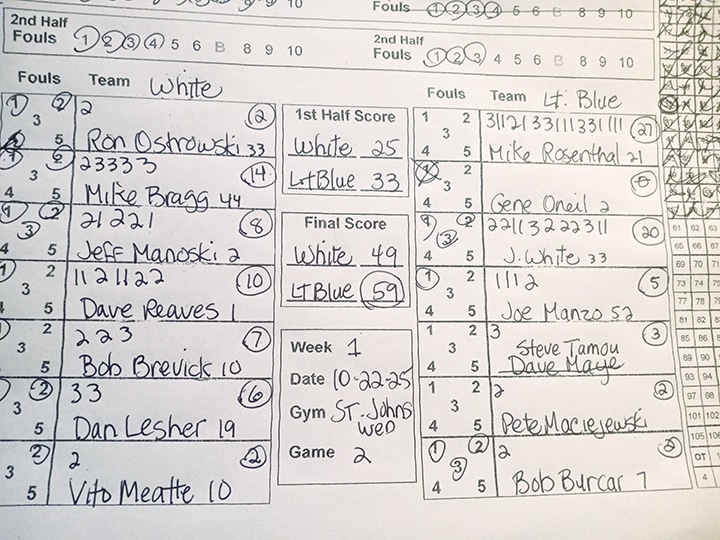 Fouls 1 2 3 4 5 6 B 8 9 10
2nd Half
Fouls 1 2 3 4 5 6 B 8 9 10
2nd Half
Fouls 1 2 3 4 5 6 B 8 9 10
Fouls Team White
1 2 2 2
3
5 Ron Ostrowski 33
1 2 23333 14
3
4 5 Mike Bragg 44
1 2 21 221 8
3
4 5 Jeff Manoski 2
1 2 11 21122 10
3
4 5 Dave Reaves 1
2 2 2 3 7
3
5 Bob Brevick 10
2 33 6
3
5 Dan Lesher 19
2 2 2
3
5 Vito Meatte 10
1st Half Score
White 25
Lt Blue 33
Final Score
White 49
LT Blue 59
Week 1
Date 10-22-25
Gym ST. Johns
WED
Game 2
Fouls Team Lt. Blue
1 2 3112133111331111 27
3
4 5 Mike Rosenthal 21
1 2 0
3
4 5 Gene Oneil 2
1 2 22113222311 20
3
4 5 J. White 33
1 2 1112 5
3
4 5 Joe Manzo 52
1 2 3 3
3 Steve Tamou
4 5 Dave Maye
1 2 2 2
3
4 5 Pete Maciejewski
1 2 2 2
3
4 5 Bob Burcar 7
61 62 63
65 66 67
69 70 71
73 74 75
77 78 79
81 82 83
85 86 87
89 90
93 94
97 98
101 102
105 106
OT 1
4